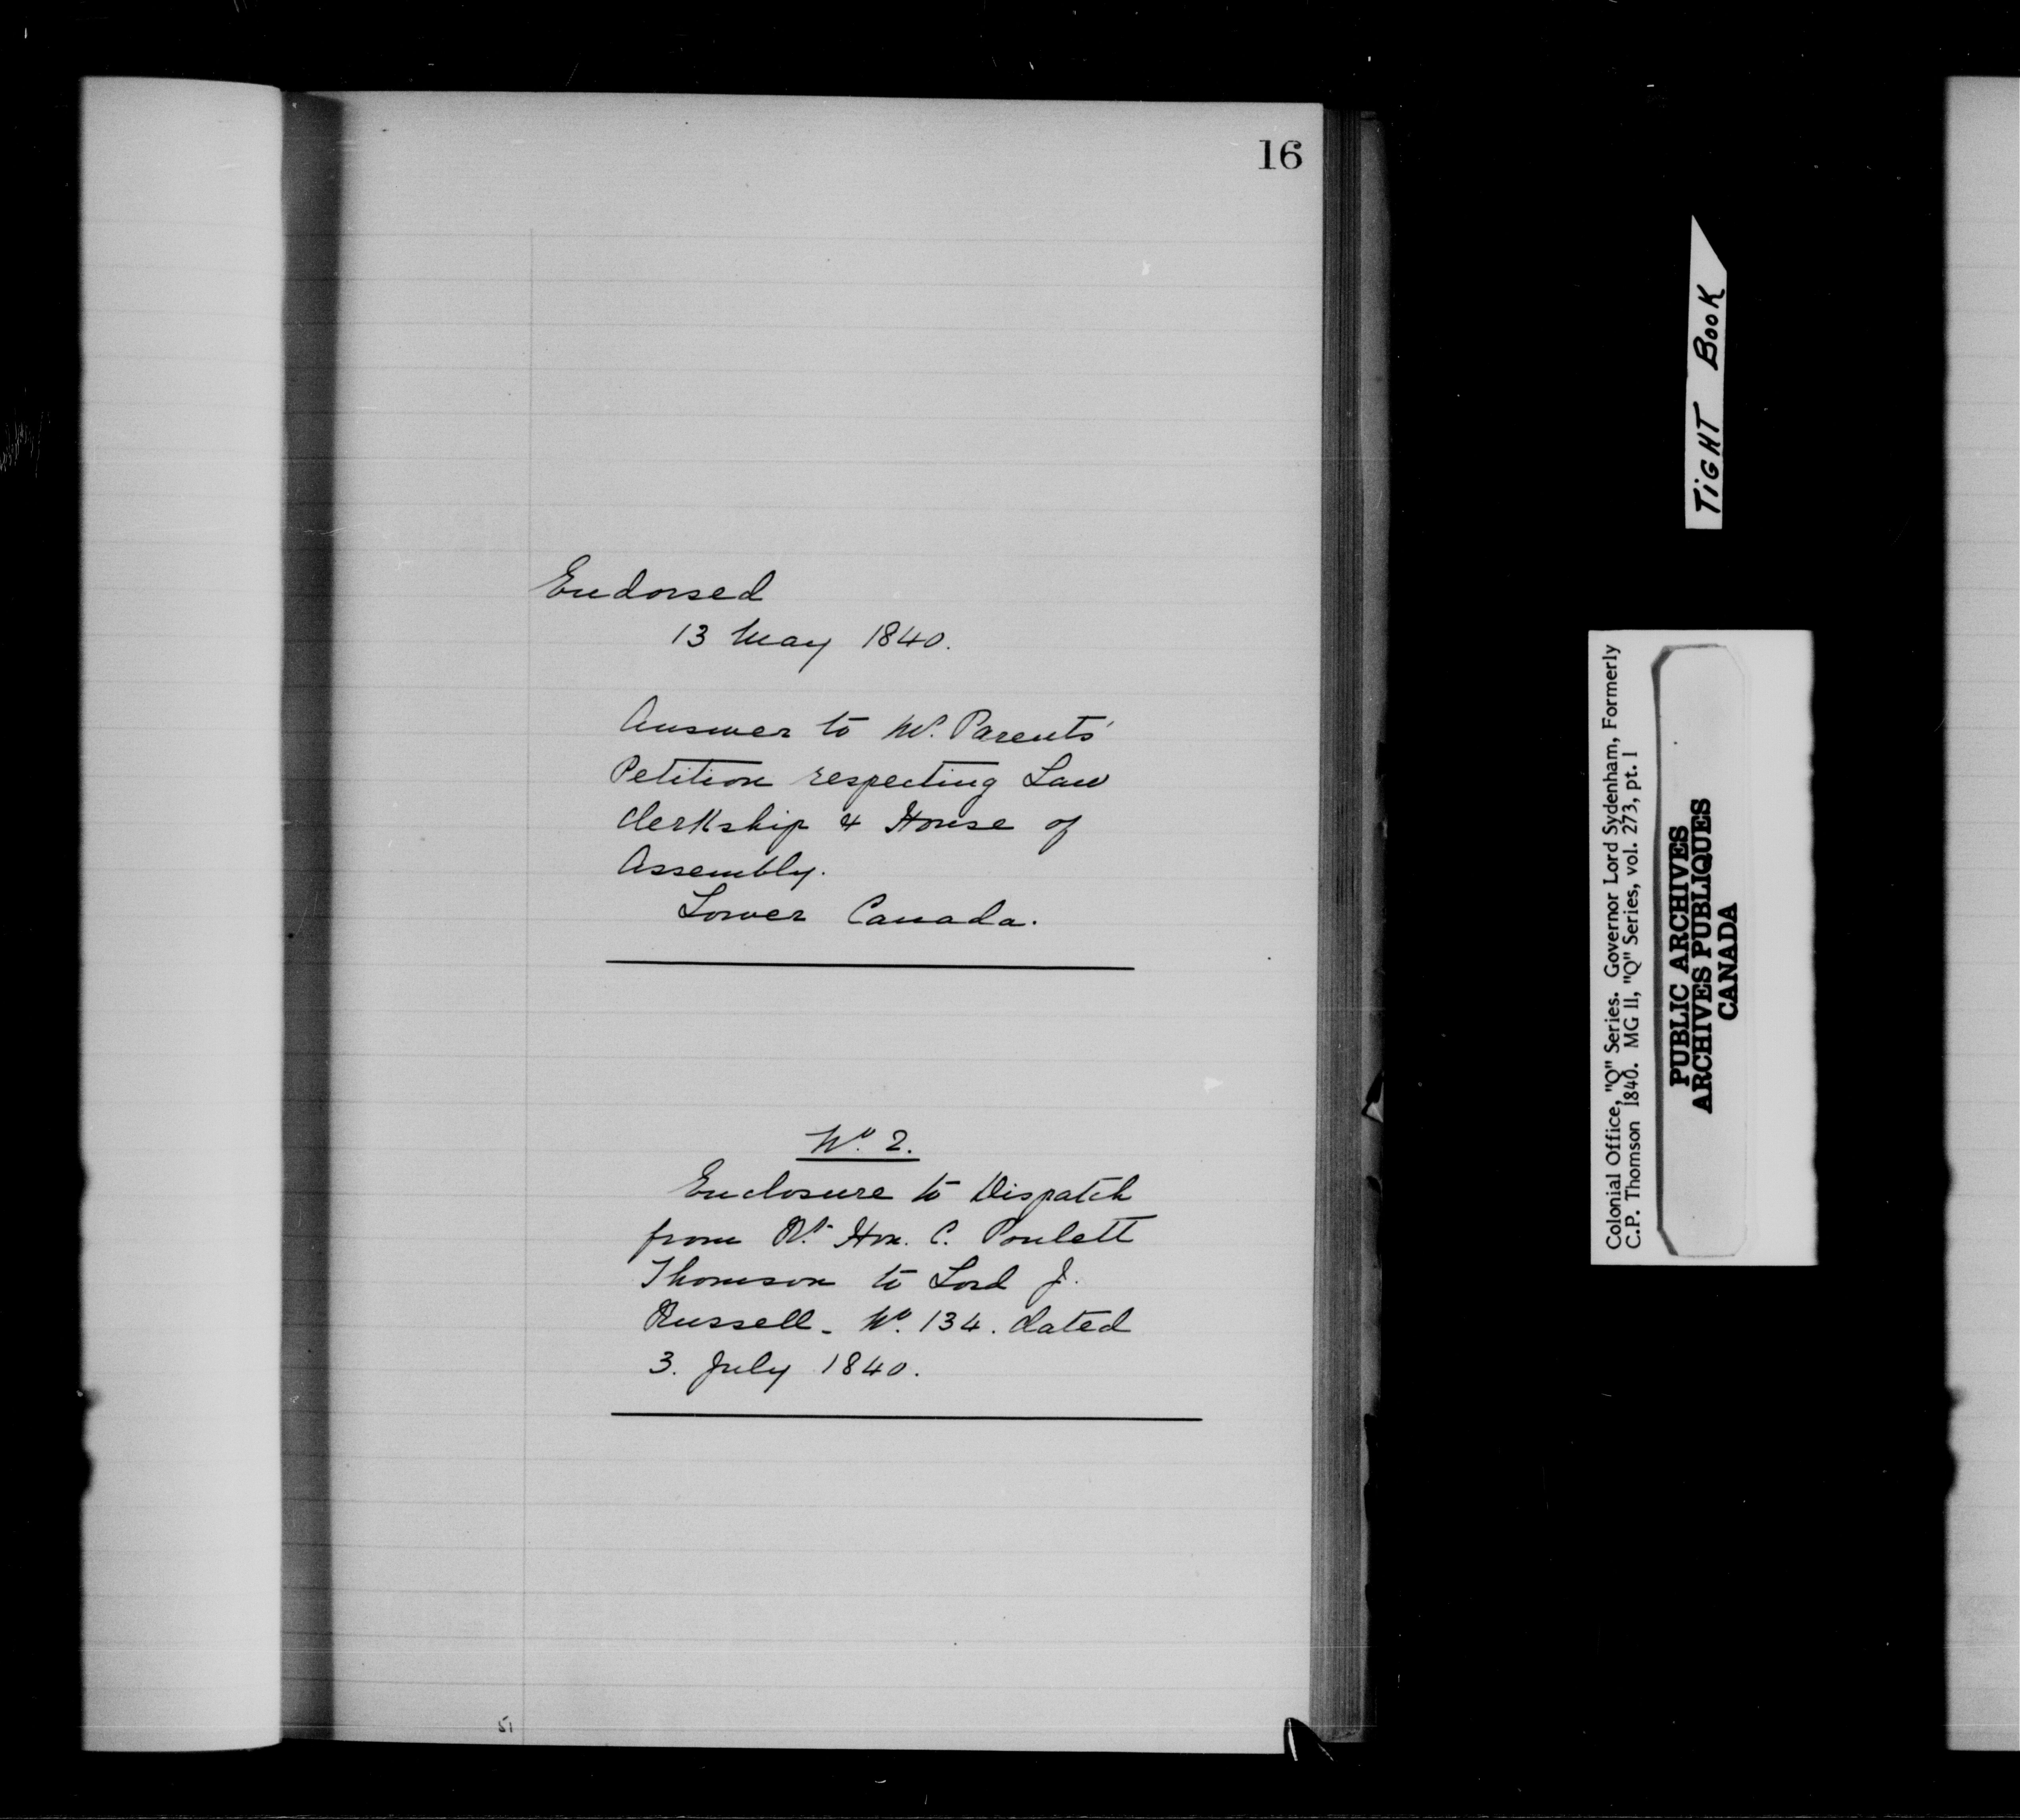 16
Endorsed
13 May 1840.
Answer to Mr. Parents'
Petition respecting Law
Clerkship & House of
Assembly.
Lower Canada.
No. 2.
Enclosure to Dispatch
from Rt. Hon. C. Poulett
Thomson to Lord J.
Russell - No. 134. dated
3. July 1840.
51
TiGHT BooK
Colonial Office, "Q" Series. Governor Lord Sydenham, Formerly
C.P. Thomson 1840. MG 11, "Q" Series, vol. 273, pt. 1
PUBLIC ARCHIVES
ARCHIVES PUBLIQUES
CANADA